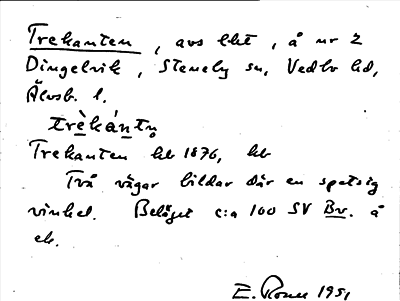 Trekanten, avs lht, å nr 2
Dingelvik, Steneby sn, Vedbo hd,
Älvsb. l.
trèkántn̥
Trekanten hb 1876, hb
Två vägar bildar där en spetsig
vinkel. Beläget c:a 100 SV Bv. å
ek.
E. Rosell 1951